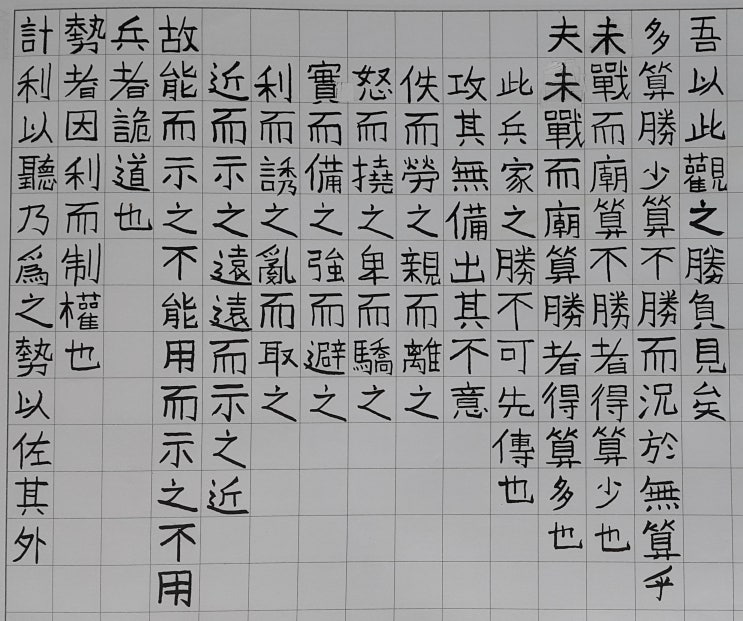 計利以聽乃爲之勢以佐其外
勢者因利而制權也
兵者詭道也
故能而示之不能用而示之不用
近而示之遠遠而示之近
利而誘之亂而取之
實而備之強而避之
怒而撓之卑而驕之
佚而勞之親而離之
攻其無備出其不意
此兵家之勝不可先傳也
夫未戰而廟算勝者得算多也
未戰而廟算不勝者得算少也
多算勝少算不勝而況於無算乎
吾以此觀之勝負見矣